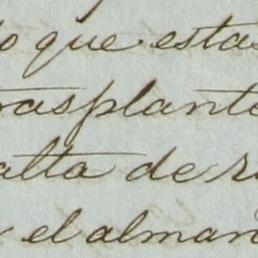 lo que estas
trasplante
falta de r
y el alman